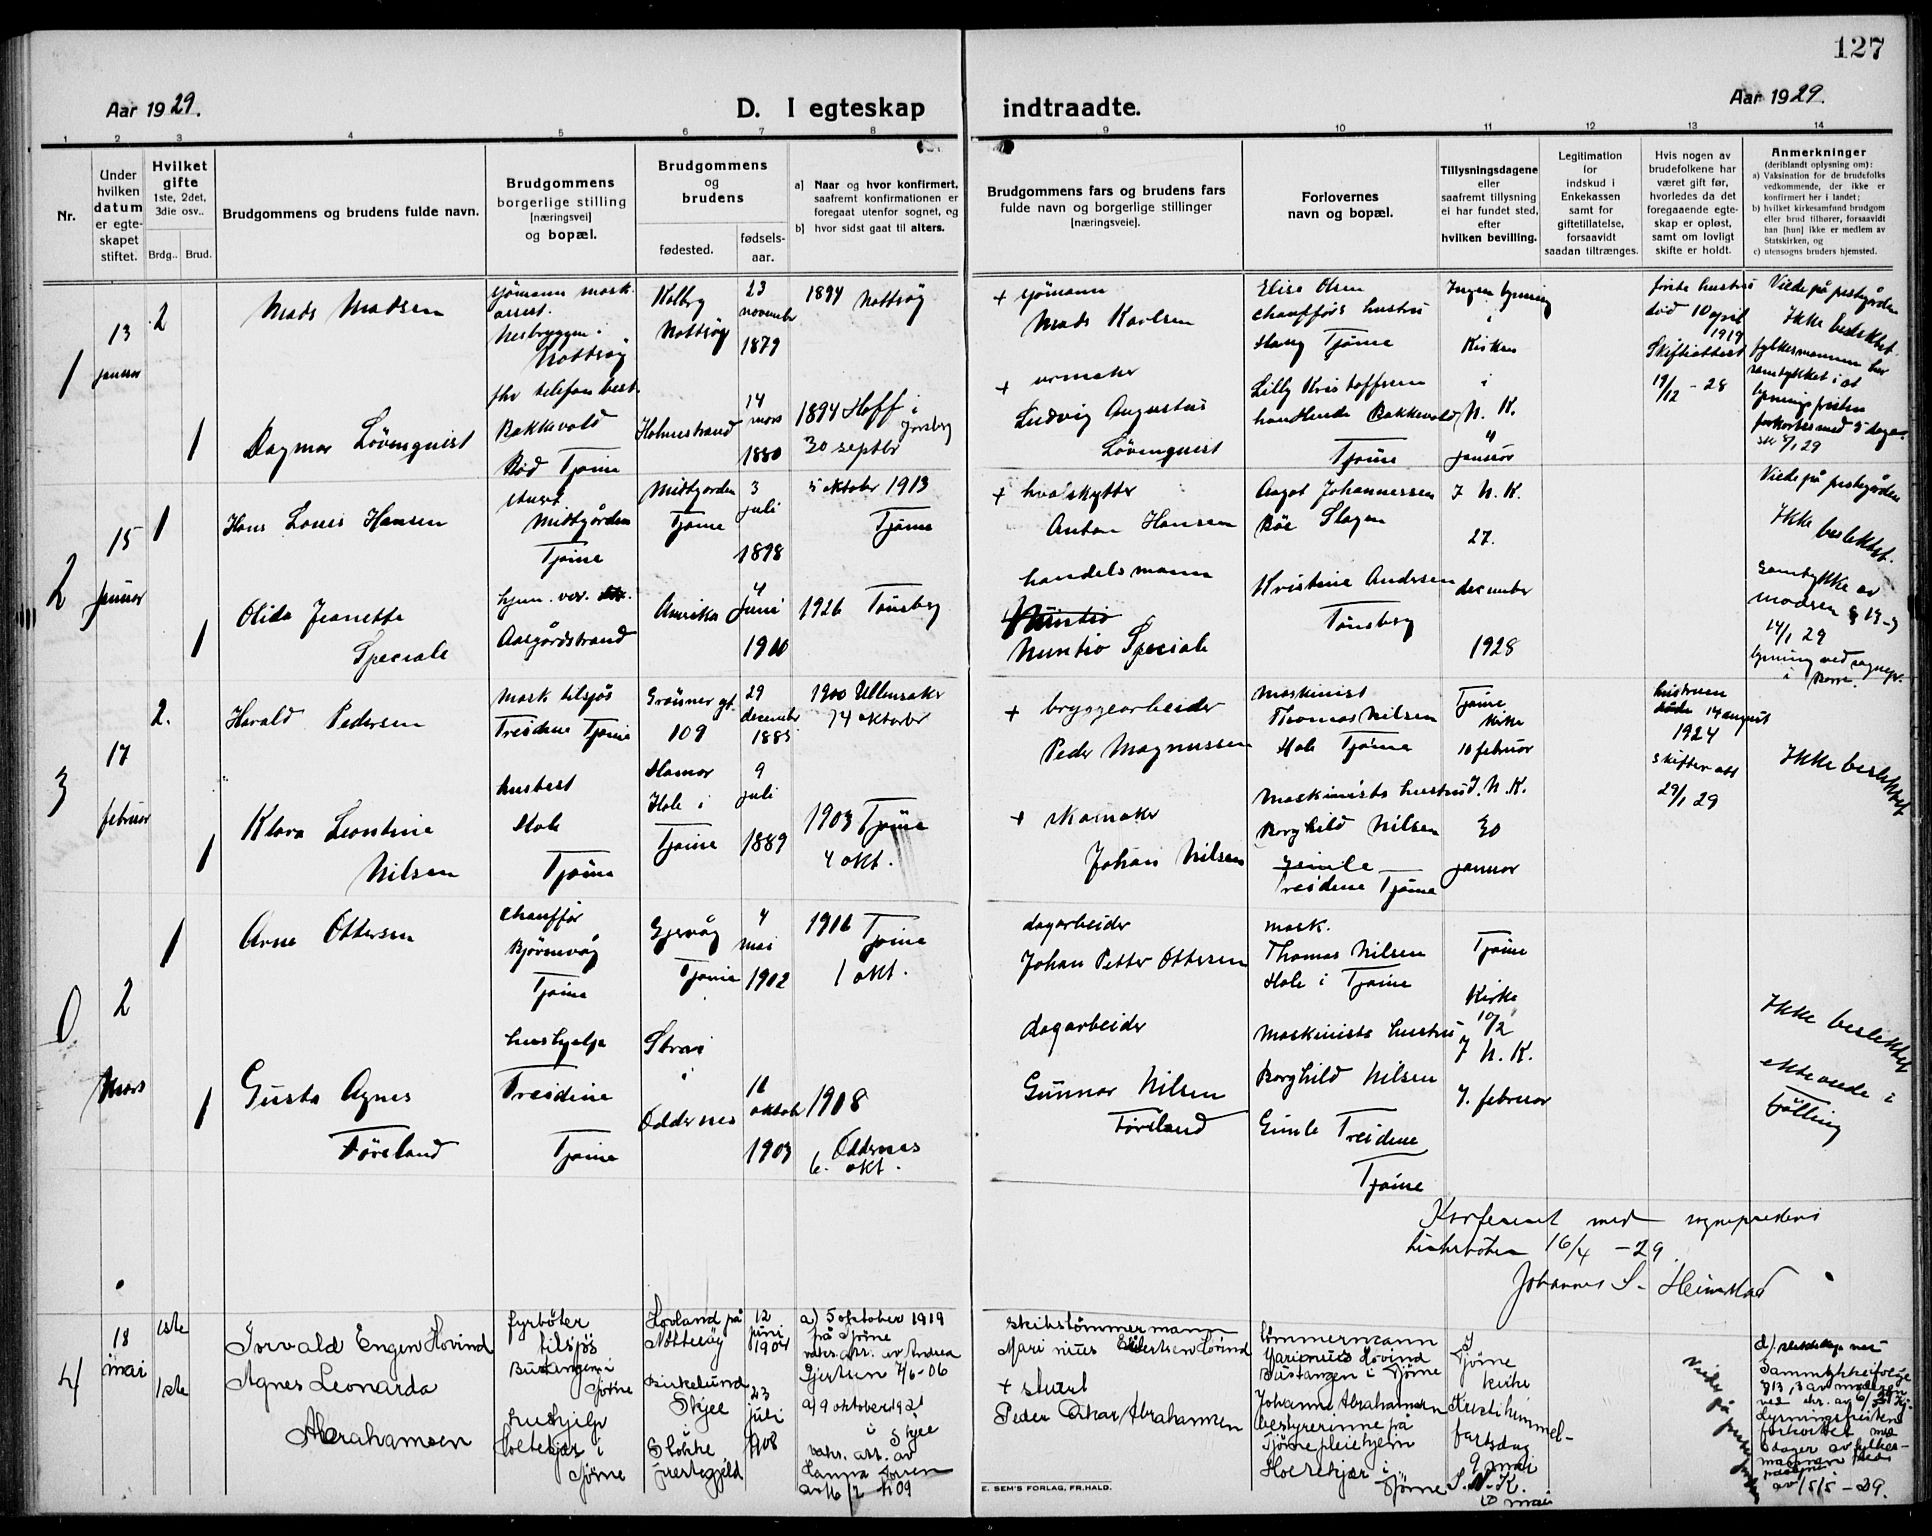 127
Aar 1929.
D. I egteskap indtraadte.
Aar 1929.
1 2 3 4 5 6 7 8 9 10 11 12 13 14
Nr.
Under hvilken datum er egte-skapet stiftet.
Hvilket gifte 1ste, 2det, 3die osv..
Brdg.. Brud.
Brudgommens og brudens fulde navn.
Brudgommens borgerlige stilling [næringsvei] og bopæl.
Brudgommens og brudens
fødested.
fødsels-aar.
a) Naar og hvor konfirmert, saafremt konfirmationen er foregaat utenfor sognet, og
b) hvor sidst gaat til alters.
Brudgommens fars og brudens fars fulde navn og borgerlige stillinger [næringsveie].
Forlovernes navn og bopæl.
Tillysningsdagene eller saafremt tillysning ei har fundet sted, efter hvilken bevilling.
Legitimation for indskud i Enkekassen samt for giftetillatelse, forsaavidt saadan tiltrænges.
Hvis nogen av brudefolkene har været gift før, hvorledes da det foregaaende egte-skap er opløst, samt om lovligt skifte er holdt.
Anmerkninger
(deriblandt oplysning om):
a) Vaksination for de brudefolks vedkommende, der ikke er konfirmert her i landet;
b) hvilket kirkesamfund brudgom eller brud tilhører, forsaavidt han [hun] ikke er medlem av Statskirken, og
c) utensogns bruders hjemsted.
1
13 januar
2
Mads Madsen
sjømann mask.
assist.
Nesbryggen i
Nøtterøy
Kolberg
Nøtterøy
23 november 1879
1894 Nøtterøy
+ sjømann
Mads Karlsen
Elise Olsen
chaufførs hustru
Haug Tjøme
Ingen lysning
i
Kirken
første hustru
død 10 april
1919
Skifteattest
19/12 - 28
Viede på prestegården
Ikke beslektet.
fylkesmannen har
samtykket i at
lysningsfristen
forkortes med 5 dager
1
Dagmar Løvenquist
fhv telefonbest.
Bakkevold
Rød Tjøme
Holmestrand
14 mars 1880
1894 Hoff i Jarlsberg
30 septbr
+ urmaker
Ludvig Augustus
Løvenquist
Lilly Kristoffersen
handlende Bakkevold
Tjøme
i
N. K.
4
januar
2
15 januar
1
Hans Louis Hansen
stuert
Midtgården
Tjøme
Midtgården
Tjøme
3 juli 1898
5 oktober 1913
Tjøme
+ hvalskytter
Anton Hansen
Aagot Johannessen
Bøe Slagen
I N. K.
27.
december
1928
Viede på prestegården
Ikke beslektet.
samtykke av
14/1 29
1
Olida Jeanette
Speciale
Aasgårdstrand
Amerika
4 juni 1910
1926 Tønsberg
handelsmann
Nuntio Speciale
Kristine Andersen
Tønsberg
3
17 februar
2.
Harald Pedersen
mask tilsjøs
Treidene Tjøme
Grønner gt.
109
29 december 1885
1900 Ullensaker
14 oktober
+ bryggearbeider
Peder Magnussen
maskinist
Thomas Nilsen
Hole Tjøme
Tjøme
kirke
10 februar
hustruen
døde 14 august
1924
skifteratt
29/1 29
Ikke beslektet
1
Klara Leontine
Nilsen
husbest
Hole
Tjøme
Hamar
Hole i
Tjøme
9 juli 1889
1903 Tjøme
4 okt.
+ skomaker
Johan Nilsen
maskinists hustru
Borghild Nilsen
Gimle
Treidene Tjøme
I. N. K.
30
januar
0.
2 Mars
1
Arne Ottersen
chauffør
Bjørnevåg
Tjøme
Gjervåg
Tjøme
4 mai 1902
1916 Tjøme
1 okt.
dagarbeider
Johan Petter Ottersen
mask.
Thomas Nilsen
Hole i Tjøme
Tjøme
Kirke
10/2
Ikke beslektet
ekteviede i
1
Gusta Agnes
Føreland
hushjelp
Treidene
Tjøme
Strai
i
Oddernes
oktob 1903
1908
Oddernes
6. okt.
dagarbeider
Gunnar Nilsen
Føreland
maskinists hustru
Borghild Nilsen
Gimle Treidene
Tjøme
I N. K.
7. februar
Konferert med sogneprestens
16/4 - 29.
Johannes S. Heimstad
4
18 mai
1ste
Torvald Engen Hovind
fyrbøter
tilsjøs
Bustangen i
Tjøme
Hovland på
Nøtterøy
12 juni 1904
a) 5 oktober 1919
på Tjøme
vaks. att. av Andrea
Gjertsen 7/6-06
skibstømmermann
Marinius Edvartsen Hovind
tømmermann
Marinius Hovind
Bustangen i Tjøme
I
Tjøme
kirke
1ste
Agnes Leonarda
Abrahamsen
hushjelp
Holtekjær i
Tjøme
Birkelund
Skjee
Stokke
prestegjeld
23 juli 1908
a) 9 oktober 1921
i Skjee
vaks. att. av
Hanna
+ stuert
Peder Oskar Abrahamsen
Johanne Abrahamsen
bestyrerinne på
Tjøme pleiehjem
Holtekjær i
Tjøme
Kristi himmel-
fartsdag
9 mai
S. N. K.
mai
lysningsfristen
forkortet med
5 dager av fylkes-
mannen
av 15/5 - 29.
E. SEM'S FORLAG, FR.HALD.